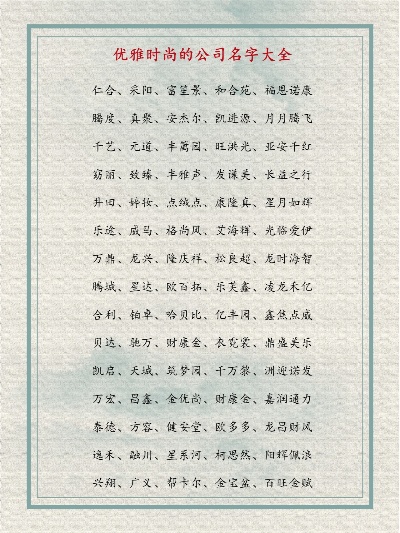 优雅时尚的公司名字大全
仁合、采阳、富笙景、和合苑、福恩诺康
腾度、真聚、安杰尔、凯进源、月月腾飞
千艺、元道、丰蔼园、旺洪光、亚安千红
窈丽、致臻、丰雅声、发谋美、长益之行
升回、婷妆、点绒点、康隆真、星月如辉
乐途、威马、格尚风、艾海辉、光临爱伊
万鼎、龙兴、隆庆祥、松良超、龙时海智
腾城、星达、欧百拓、乐芙鑫、凌龙禾亿
合利、铂卓、哈贝比、亿丰园、鑫焦点威
贝达、驰万、财康金、衣霓裳、鼎盛美乐
凯启、天域、筑梦园、千万黎、洲迎诺发
万宏、昌鑫、金优尚、财康金、嘉润通力
泰德、方容、健安堂、欧多多、龙昂财风
逸禾、融川、星系河、柯思然、阳辉佩浪
兴翔、广义、帮卡尔、金宝盆、百旺金赋